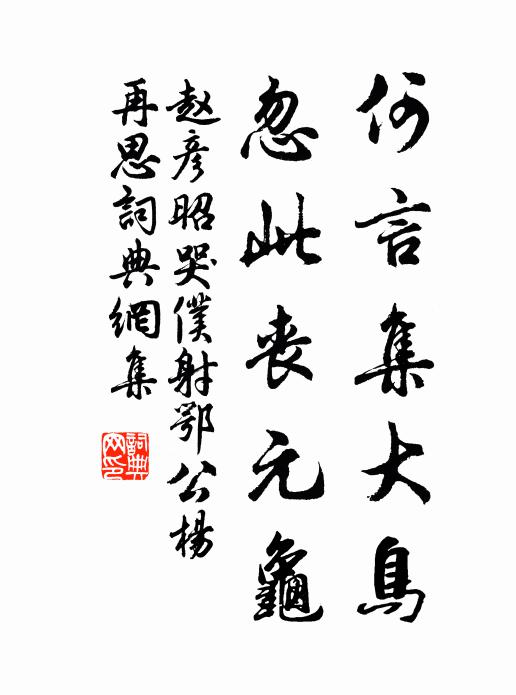 何言集大鳥
忽此丧元龜
赵彦昭哭僕射鄂公楊
再思詞典網集
詞典网印